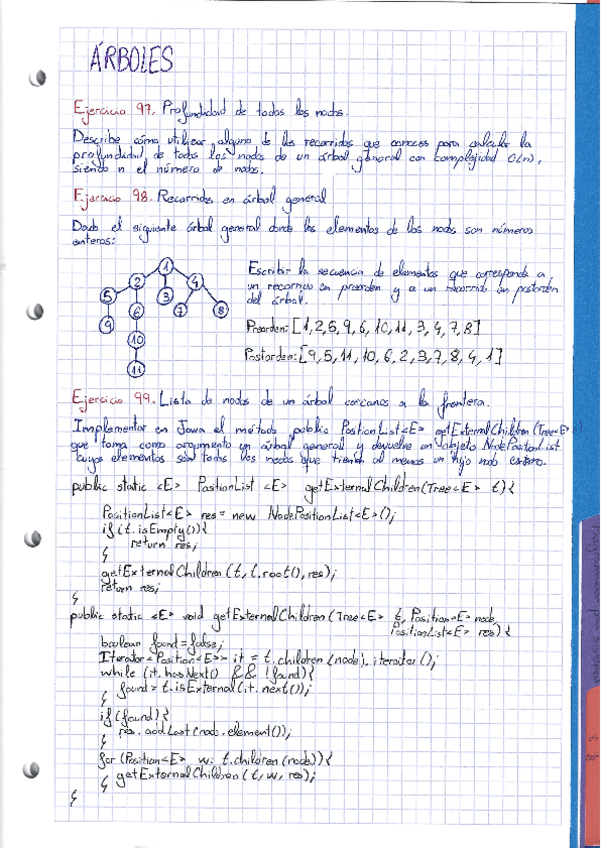 ÁRBOLES
Ejercicio 97. Profundidad de todos los nodos.
Describe cómo utilizar alguno de los recorridos que conoces para calcular la
profundidad de todos los nodos de un árbol general con complejidad O(n),
siendo n el número de nodos.
Ejercicio 98. Recorridos en árbol general
Dado el siguiente árbol general donde los elementos de los nodos son números
enteros:
1
2
4
5
6
3
7
8
9
10
11
Escribir la secuencia de elementos que corresponde a
un recorrido en preorden y a un recorrido en postorden
del árbol.
Preorden: [1,2,5,9,6,10,11,3,4,7,8]
Postorden: [9,5,11,10,6,2,3,7,8,4,1]
Ejercicio 99. Lista de nodos de un árbol cercanos a la frontera.
Implementar en Java el método public PositionList<E> getExternalChildren(Tree<E> t)
que toma como argumento un árbol general y devuelve un objeto NodePositionList
cuyos elementos son todos los nodos que tienen al menos un hijo nodo externo.
public static <E> PositionList <E> getExternalChildren(Tree<E> t){
PositionList<E> res = new NodePositionList<E>();
if(t.isEmpty()){
return res;
}
getExternalChildren(t, t.root(), res);
return res;
}
public static <E> void getExternalChildren(Tree<E> t, Position<E> node,
PositionList<E> res){
boolean found = false;
Iterator<Position<E>> it = t.children(node).iterator();
while (it.hasNext() && !found){
found = t.isExternal(it.next());
}
if(found){
res.addLast(node.element());
}
for (Position<E> w: t.children(node)){
getExternalChildren(t, w, res);
}
}